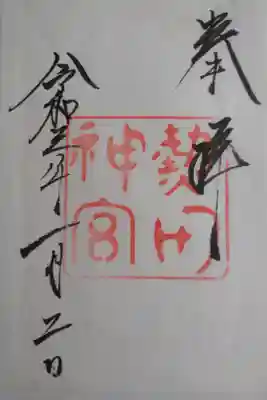 奉拝
熱田
神宮
令和五年一月二日